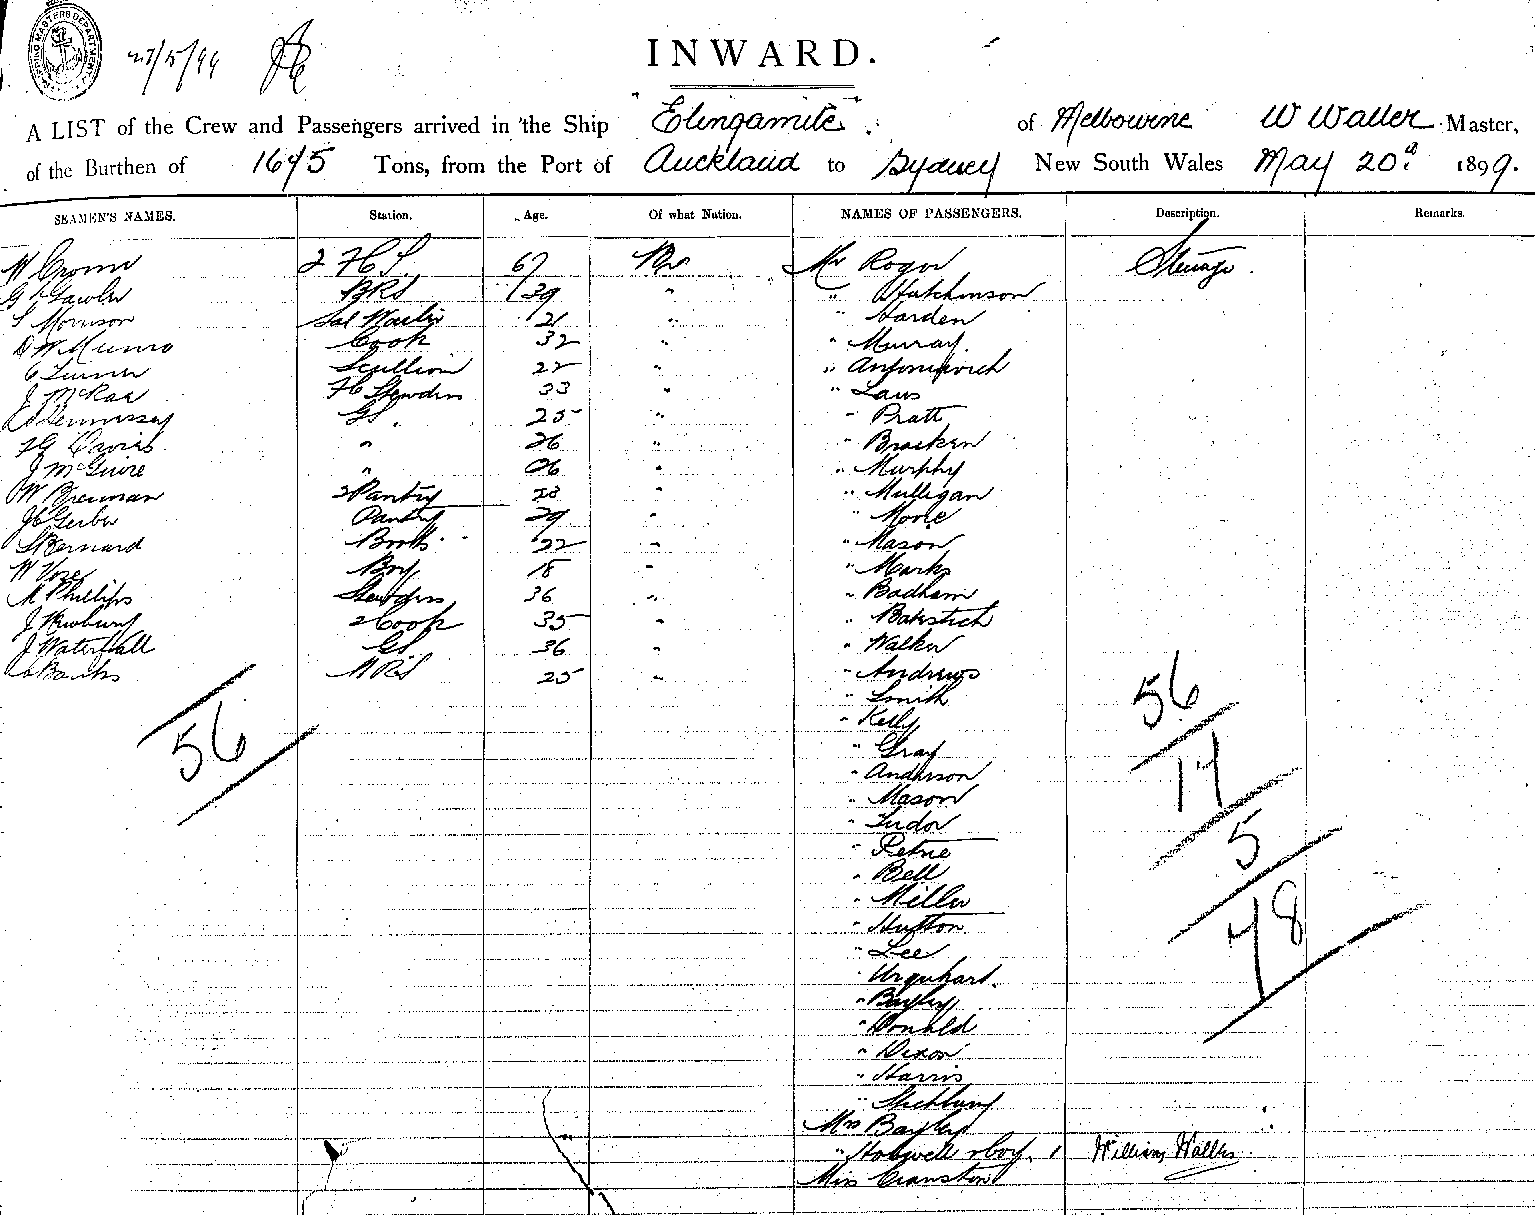 SHIPPING MASTERS DEPARTMENT
27/5/99
INWARD.
A LIST of the Crew and Passengers arrived in the Ship "Elingamite" of Melbourne W Waller Master,
of the Burthen of 1675 Tons, from the Port of Auckland to Sydney New South Wales May 20th 1899.
SEAMEN'S NAMES. Station. Age. Of what Nation. NAMES OF PASSENGERS. Description. Remarks.
W Cronin 2 HS 67 Br Mr Roger Steerage
BRS 39 " " Hutchinson
S Morrison Sal Waiter 21 " " Harden
D W Munro Cook 32 " " Murray
C Turner Scullion 22 " "
J McRae FC Stewdss 33 " " Laws
Hennessey GS. 25 " " Pratt
Davies " 26 " " Bracken
J McGuire " 26 " " Murphy
W Brennan 2 Pantry 23 " " Mulligan
J C Gerber Pantry 29 " " Moore
S Bernard Boots 22 " " Mason
W Vose Boy 18 " " Marks
M Phillips Stewdss 36 " " Badham
J Newbury 2 Cook 35 " "
J Waterfall GS 36 " " Walker
Banks MRS 25 " " Andrews
" Smith
" Kelly
" Gray
" Anderson
" Mason
" Tudor
" Petrie
" Bell
" Miller
" Hutton
" Lee
" Urquhart.
" Bayley
" Donald
" Dixon
" Harris
"
Mrs Bayley
" Hopwell & boy. 1 William Waller
Miss Cranston
56
56
14
5
78